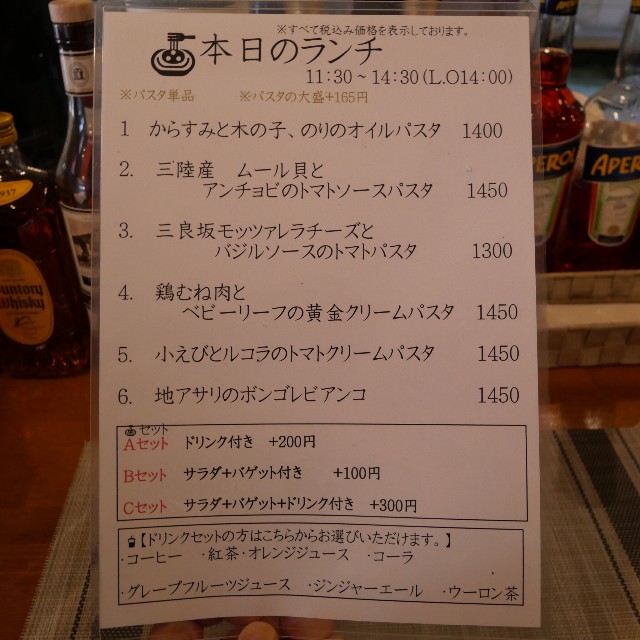 ※すべて税込み価格を表示しております。
本日のランチ
11:30~14:30(L.O14:00)
※パスタ単品 ※パスタの大盛+165円
1 からすみと木の子、のりのオイルパスタ 1400
2. 三陸産 ムール貝と
アンチョビのトマトソースパスタ 1450
3. 三良坂モッツァレラチーズと
バジルソースのトマトパスタ 1300
4. 鶏むね肉と
ベビーリーフの黄金クリームパスタ 1450
5. 小えびとルコラのトマトクリームパスタ 1450
6. 地アサリのボンゴレビアンコ 1450
セット
Aセット ドリンク付き +200円
Bセット サラダ+バゲット付き +100円
Cセット サラダ+バゲット+ドリンク付き +300円
【ドリンクセットの方はこちらからお選びいただけます。】
·コーヒー ·紅茶·オレンジジュース ·コーラ
·グレープフルーツジュース ·ジンジャーエール ·ウーロン茶
1937
Suntory
Whisky
APEROL
APEROL